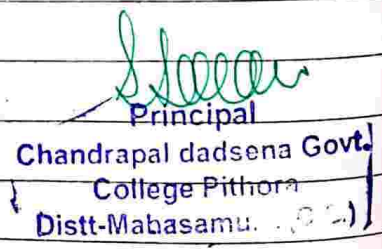 Principal
Chandrapal dadsena Govt.
College Pithora
Distt-Mahasamu.